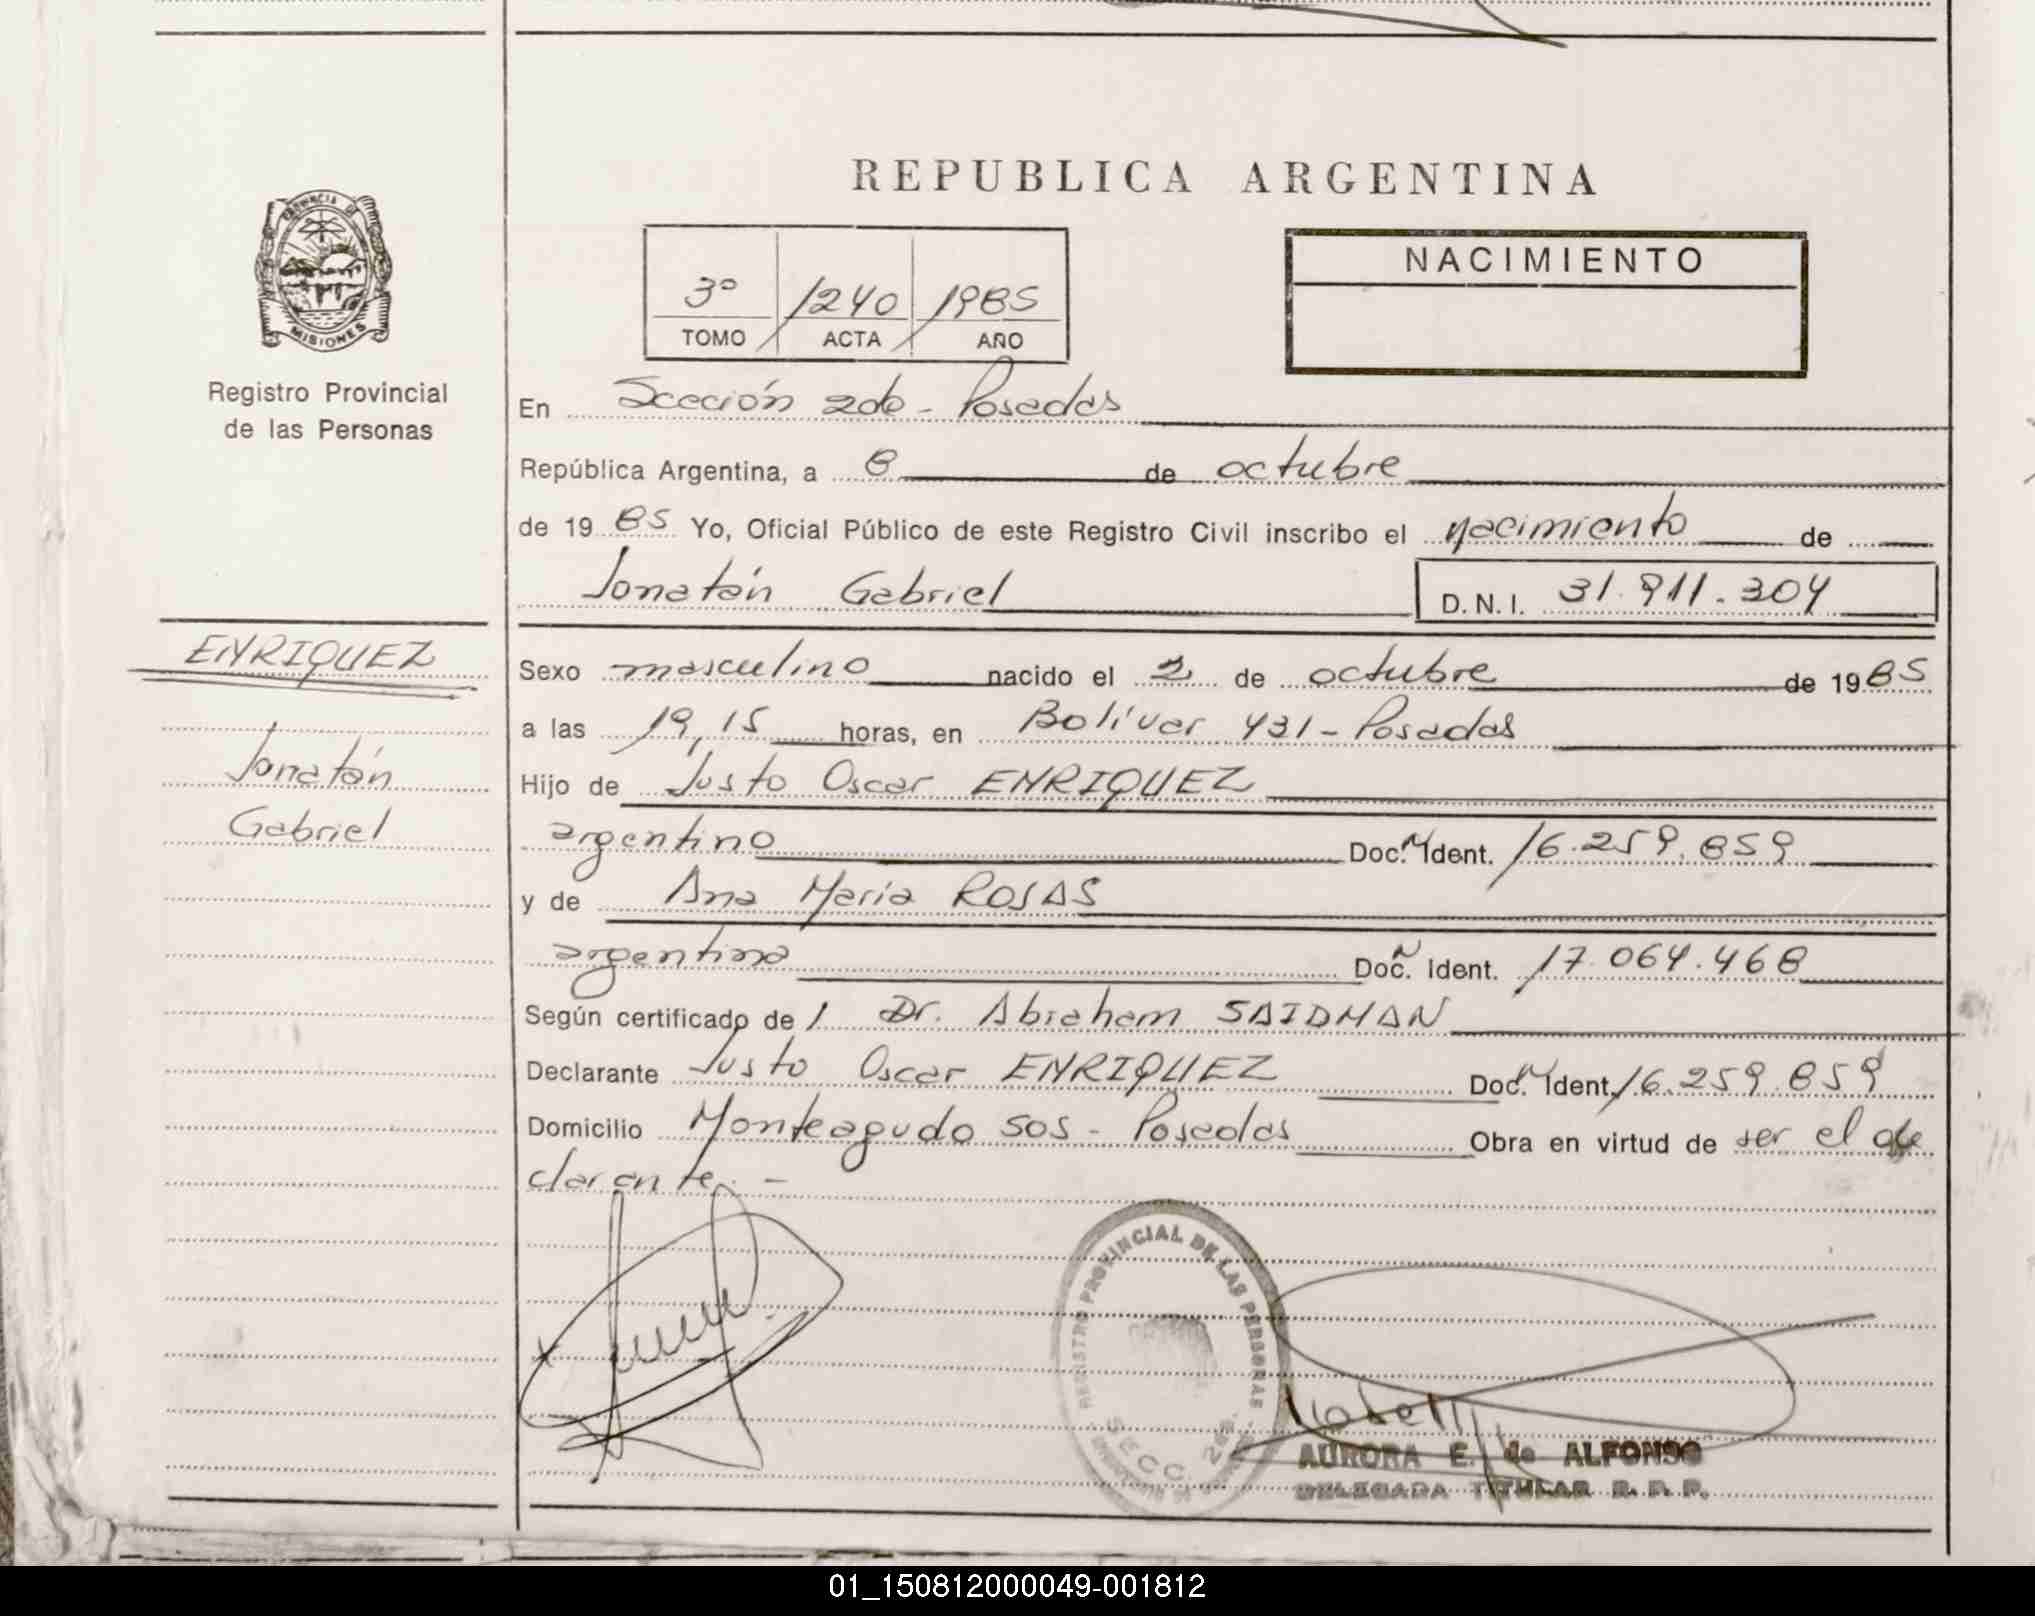 REPUBLICA ARGENTINA
PROVINCIA DE
MISIONES
Registro Provincial
de las Personas
3º 1240 1985
TOMO ACTA AÑO
NACIMIENTO
En Sección 2da - Posadas
República Argentina, a 8 de octubre
de 19 85 Yo, Oficial Público de este Registro Civil inscribo el nacimiento de
Jonatán Gabriel D.N.I. 31.911.304
ENRIQUEZ
Jonatán
Gabriel
Sexo masculino nacido el 2 de octubre de 1985
a las 19,15 horas, en Bolívar 431 - Posadas
Hijo de Justo Oscar ENRIQUEZ
argentino Doc. Ident. 16.259.859
y de Ana María ROSAS
argentina Doc. Ident. 17.064.468
Según certificado de / Dr. Abraham SAIDMAN
Declarante Justo Oscar ENRIQUEZ Doc. Ident. 16.259.859
Domicilio Monteagudo 505 - Posadas Obra en virtud de ser el de
clarante. -
REGISTRO PROVINCIAL DE LAS PERSONAS
SECC. 2da.
AURORA E. de ALFONSO
DELEGADA TITULAR R. P. P.
01_150812000049-001812